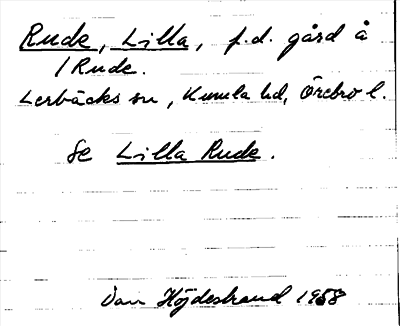 Rude, Lilla, f.d. gård å
/Rude.
Lerbäcks sn, Kumla hd, Örebro l.
Se Lilla Rude.
Dan Höjdestrand 1958